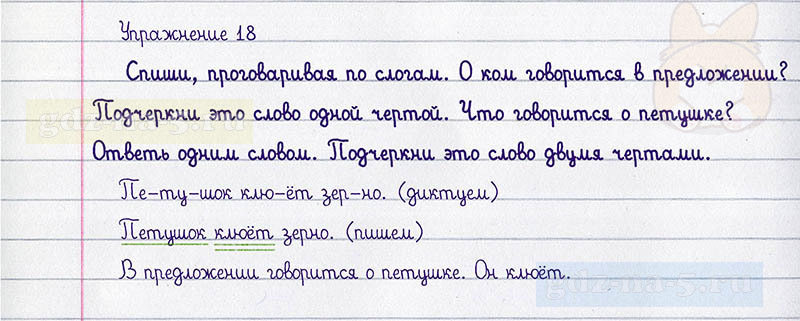 Упражнение 18
Спиши, проговаривая по слогам. О ком говорится в предложении?
Подчеркни это слово одной чертой. Что говорится о петушке?
Ответь одним словом. Подчеркни это слово двумя чертами.
Пе-ту-шок клю-ёт зер-но. (диктуем)
Петушок клюёт зерно. (пишем)
В предложении говорится о петушке. Он клюёт.
gdz-na-5.ru
gdz-na-5.ru